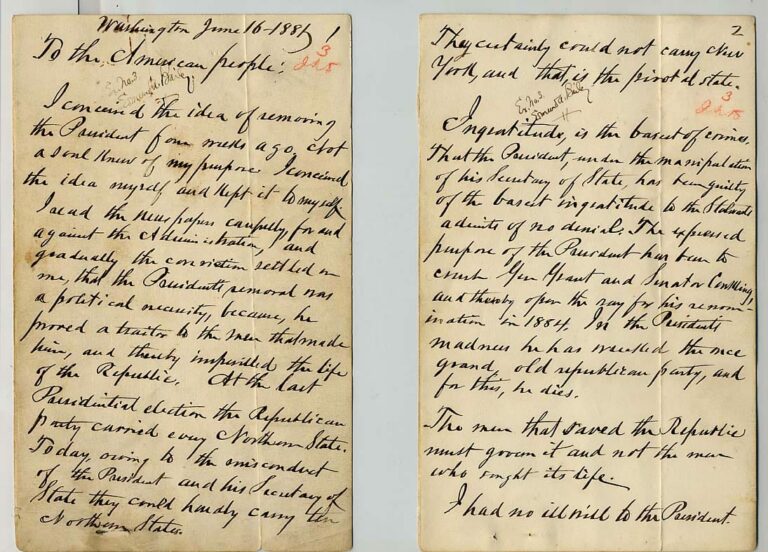 Washington June 16-1881
1
3
To the American people:
Ex. No. 3
I conceived the idea of removing
the President four weeks ago, Not
a soul knew of my purpose I conceived
the idea myself and kept it to myself.
I read the newspapers carefully, for and
against the Administration, and
gradually the conviction settled on
me, that the President's removal was
a political necessity, because, he
proved a traitor to the men that made
him, and thereby imperilled the life
of the Republic. At the last
Presidential election the Republican
party carried every Northern State.
Today, owing to the misconduct
of the President and his Secretary of
State they could hardly carry ten
Northern States.
2
They certainly could not carry New
York, and that, is the pivotal state.
3
Ex. No. 3
Ingratitude, is the basest of crimes.
That the President, under the manipulation
of his Secretary of State, has been guilty
of the basest ingratitude to the Stalwarts
admits of no denial. The expressed
purpose of the President has been to
crush Gen Grant and Senator Conkling,
and thereby open the way for his renom-
ination in 1884. In the President's
madness he has wrecked the once
grand, old republican party, and
for this, he dies.
The men that saved the Republic
must govern it and not the men
who sought its life.
I had no ill will to the President.